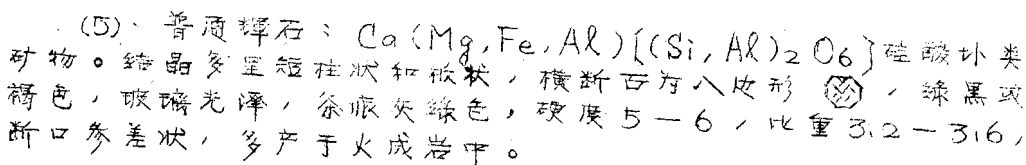 (5)、普通辉石：Ca(Mg,Fe,Al)[(Si,Al)₂O₆]硅酸盐类
矿物。结晶多呈短柱状和板状，横断面为八边形，绿黑或
褐色，玻璃光泽，条痕灰绿色，硬度5—6，比重3.2—3.6，
断口参差状，多产于火成岩中。